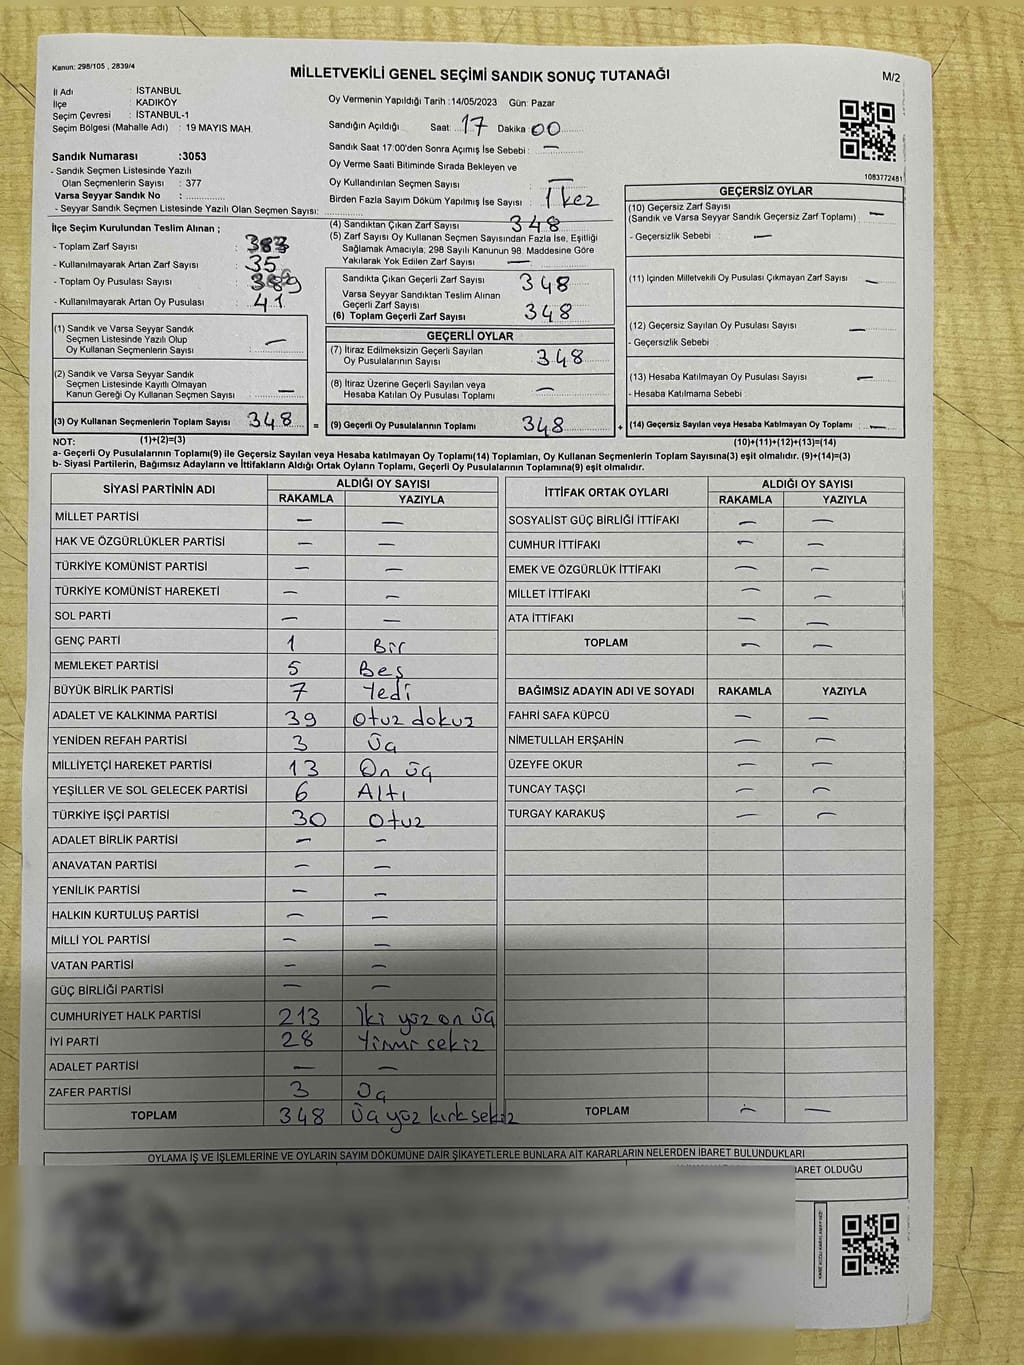 Kanun: 298/105 , 2839/4
MİLLETVEKİLİ GENEL SEÇİMİ SANDIK SONUÇ TUTANAĞI
M/2
İl Adı : İSTANBUL
İlçe : KADIKÖY
Seçim Çevresi : İSTANBUL-1
Seçim Bölgesi (Mahalle Adı) : 19 MAYIS MAH.
Sandık Numarası :3053
- Sandık Seçmen Listesinde Yazılı
Olan Seçmenlerin Sayısı : 377
Varsa Seyyar Sandık No :
- Seyyar Sandık Seçmen Listesinde Yazılı Olan Seçmen Sayısı:
Oy Vermenin Yapıldığı Tarih :14/05/2023 Gün: Pazar
Sandığın Açıldığı Saat: 17 Dakika: 00
Sandık Saat 17:00'den Sonra Açımış İse Sebebi : —
Oy Verme Saati Bitiminde Sırada Bekleyen ve
Oy Kullandırılan Seçmen Sayısı : —
Birden Fazla Sayım Döküm Yapılmış İse Sayısı : 1 kez
1083772481
İlçe Seçim Kurulundan Teslim Alınan ;
- Toplam Zarf Sayısı : 383
- Kullanılmayarak Artan Zarf Sayısı : 35
- Toplam Oy Pusulası Sayısı : 389
- Kullanılmayarak Artan Oy Pusulası : 41
(1) Sandık ve Varsa Seyyar Sandık
Seçmen Listesinde Yazılı Olup
Oy Kullanan Seçmenlerin Sayısı : —
(2) Sandık ve Varsa Seyyar Sandık
Seçmen Listesinde Kayıtlı Olmayan
Kanun Gereği Oy Kullanan Seçmen Sayısı : —
(3) Oy Kullanan Seçmenlerin Toplam Sayısı 348 =
(4) Sandıktan Çıkan Zarf Sayısı 348
(5) Zarf Sayısı Oy Kullanan Seçmen Sayısından Fazla İse, Eşitliği
Sağlamak Amacıyla; 298 Sayılı Kanunun 98. Maddesine Göre
Yakılarak Yok Edilen Zarf Sayısı —
Sandıkta Çıkan Geçerli Zarf Sayısı 348
Varsa Seyyar Sandıktan Teslim Alınan
Geçerli Zarf Sayısı
(6) Toplam Geçerli Zarf Sayısı 348
GEÇERLİ OYLAR
(7) İtiraz Edilmeksizin Geçerli Sayılan
Oy Pusulalarının Sayısı 348
(8) İtiraz Üzerine Geçerli Sayılan veya
Hesaba Katılan Oy Pusulası Toplamı —
(9) Geçerli Oy Pusulalarının Toplamı 348 +
GEÇERSİZ OYLAR
(10) Geçersiz Zarf Sayısı
(Sandık ve Varsa Seyyar Sandık Geçersiz Zarf Toplamı) —
- Geçersizlik Sebebi : —
(11) İçinden Milletvekili Oy Pusulası Çıkmayan Zarf Sayısı —
(12) Geçersiz Sayılan Oy Pusulası Sayısı —
- Geçersizlik Sebebi :
(13) Hesaba Katılmayan Oy Pusulası Sayısı —
- Hesaba Katılmama Sebebi :
(14) Geçersiz Sayılan veya Hesaba Katılmayan Oy Toplamı : —
NOT: (1)+(2)=(3) (10)+(11)+(12)+(13)=(14)
a- Geçerli Oy Pusulalarının Toplamı(9) ile Geçersiz Sayılan veya Hesaba katılmayan Oy Toplamı(14) Toplamları, Oy Kullanan Seçmenlerin Toplam Sayısına(3) eşit olmalıdır. (9)+(14)=(3)
b- Siyasi Partilerin, Bağımsız Adayların ve İttifakların Aldığı Ortak Oyların Toplamı, Geçerli Oy Pusulalarının Toplamına(9) eşit olmalıdır.
SİYASİ PARTİNİN ADI ALDIĞI OY SAYISI
RAKAMLA YAZIYLA
MİLLET PARTİSİ — —
HAK VE ÖZGÜRLÜKLER PARTİSİ — —
TÜRKİYE KOMÜNİST PARTİSİ — —
TÜRKİYE KOMÜNİST HAREKETİ — —
SOL PARTİ — —
GENÇ PARTİ 1 Bir
MEMLEKET PARTİSİ 5 Beş
BÜYÜK BİRLİK PARTİSİ 7 Yedi
ADALET VE KALKINMA PARTİSİ 39 Otuz dokuz
YENİDEN REFAH PARTİSİ 3 Üç
MİLLİYETÇİ HAREKET PARTİSİ 13 On üç
YEŞİLLER VE SOL GELECEK PARTİSİ 6 Altı
TÜRKİYE İŞÇİ PARTİSİ 30 Otuz
ADALET BİRLİK PARTİSİ — —
ANAVATAN PARTİSİ — —
YENİLİK PARTİSİ — —
HALKIN KURTULUŞ PARTİSİ — —
MİLLİ YOL PARTİSİ — —
VATAN PARTİSİ — —
GÜÇ BİRLİĞİ PARTİSİ — —
CUMHURİYET HALK PARTİSİ 213 İki yüz on üç
İYİ PARTİ 28 Yirmi sekiz
ADALET PARTİSİ — —
ZAFER PARTİSİ 3 Üç
TOPLAM 348 Üç yüz kırk sekiz
İTTİFAK ORTAK OYLARI ALDIĞI OY SAYISI
RAKAMLA YAZIYLA
SOSYALİST GÜÇ BİRLİĞİ İTTİFAKI — —
CUMHUR İTTİFAKI — —
EMEK VE ÖZGÜRLÜK İTTİFAKI — —
MİLLET İTTİFAKI — —
ATA İTTİFAKI — —
TOPLAM — —
BAĞIMSIZ ADAYIN ADI VE SOYADI RAKAMLA YAZIYLA
FAHRİ SAFA KÜPCÜ — —
NİMETULLAH ERŞAHİN — —
ÜZEYFE OKUR — —
TUNCAY TAŞÇI — —
TURGAY KARAKUŞ — —
TOPLAM — —
OYLAMA İŞ VE İŞLEMLERİNE VE OYLARIN SAYIM DÖKÜMÜNE DAİR ŞİKAYETLERLE BUNLARA AİT KARARLARIN NELERDEN İBARET BULUNDUKLARI
İBARET OLDUĞU